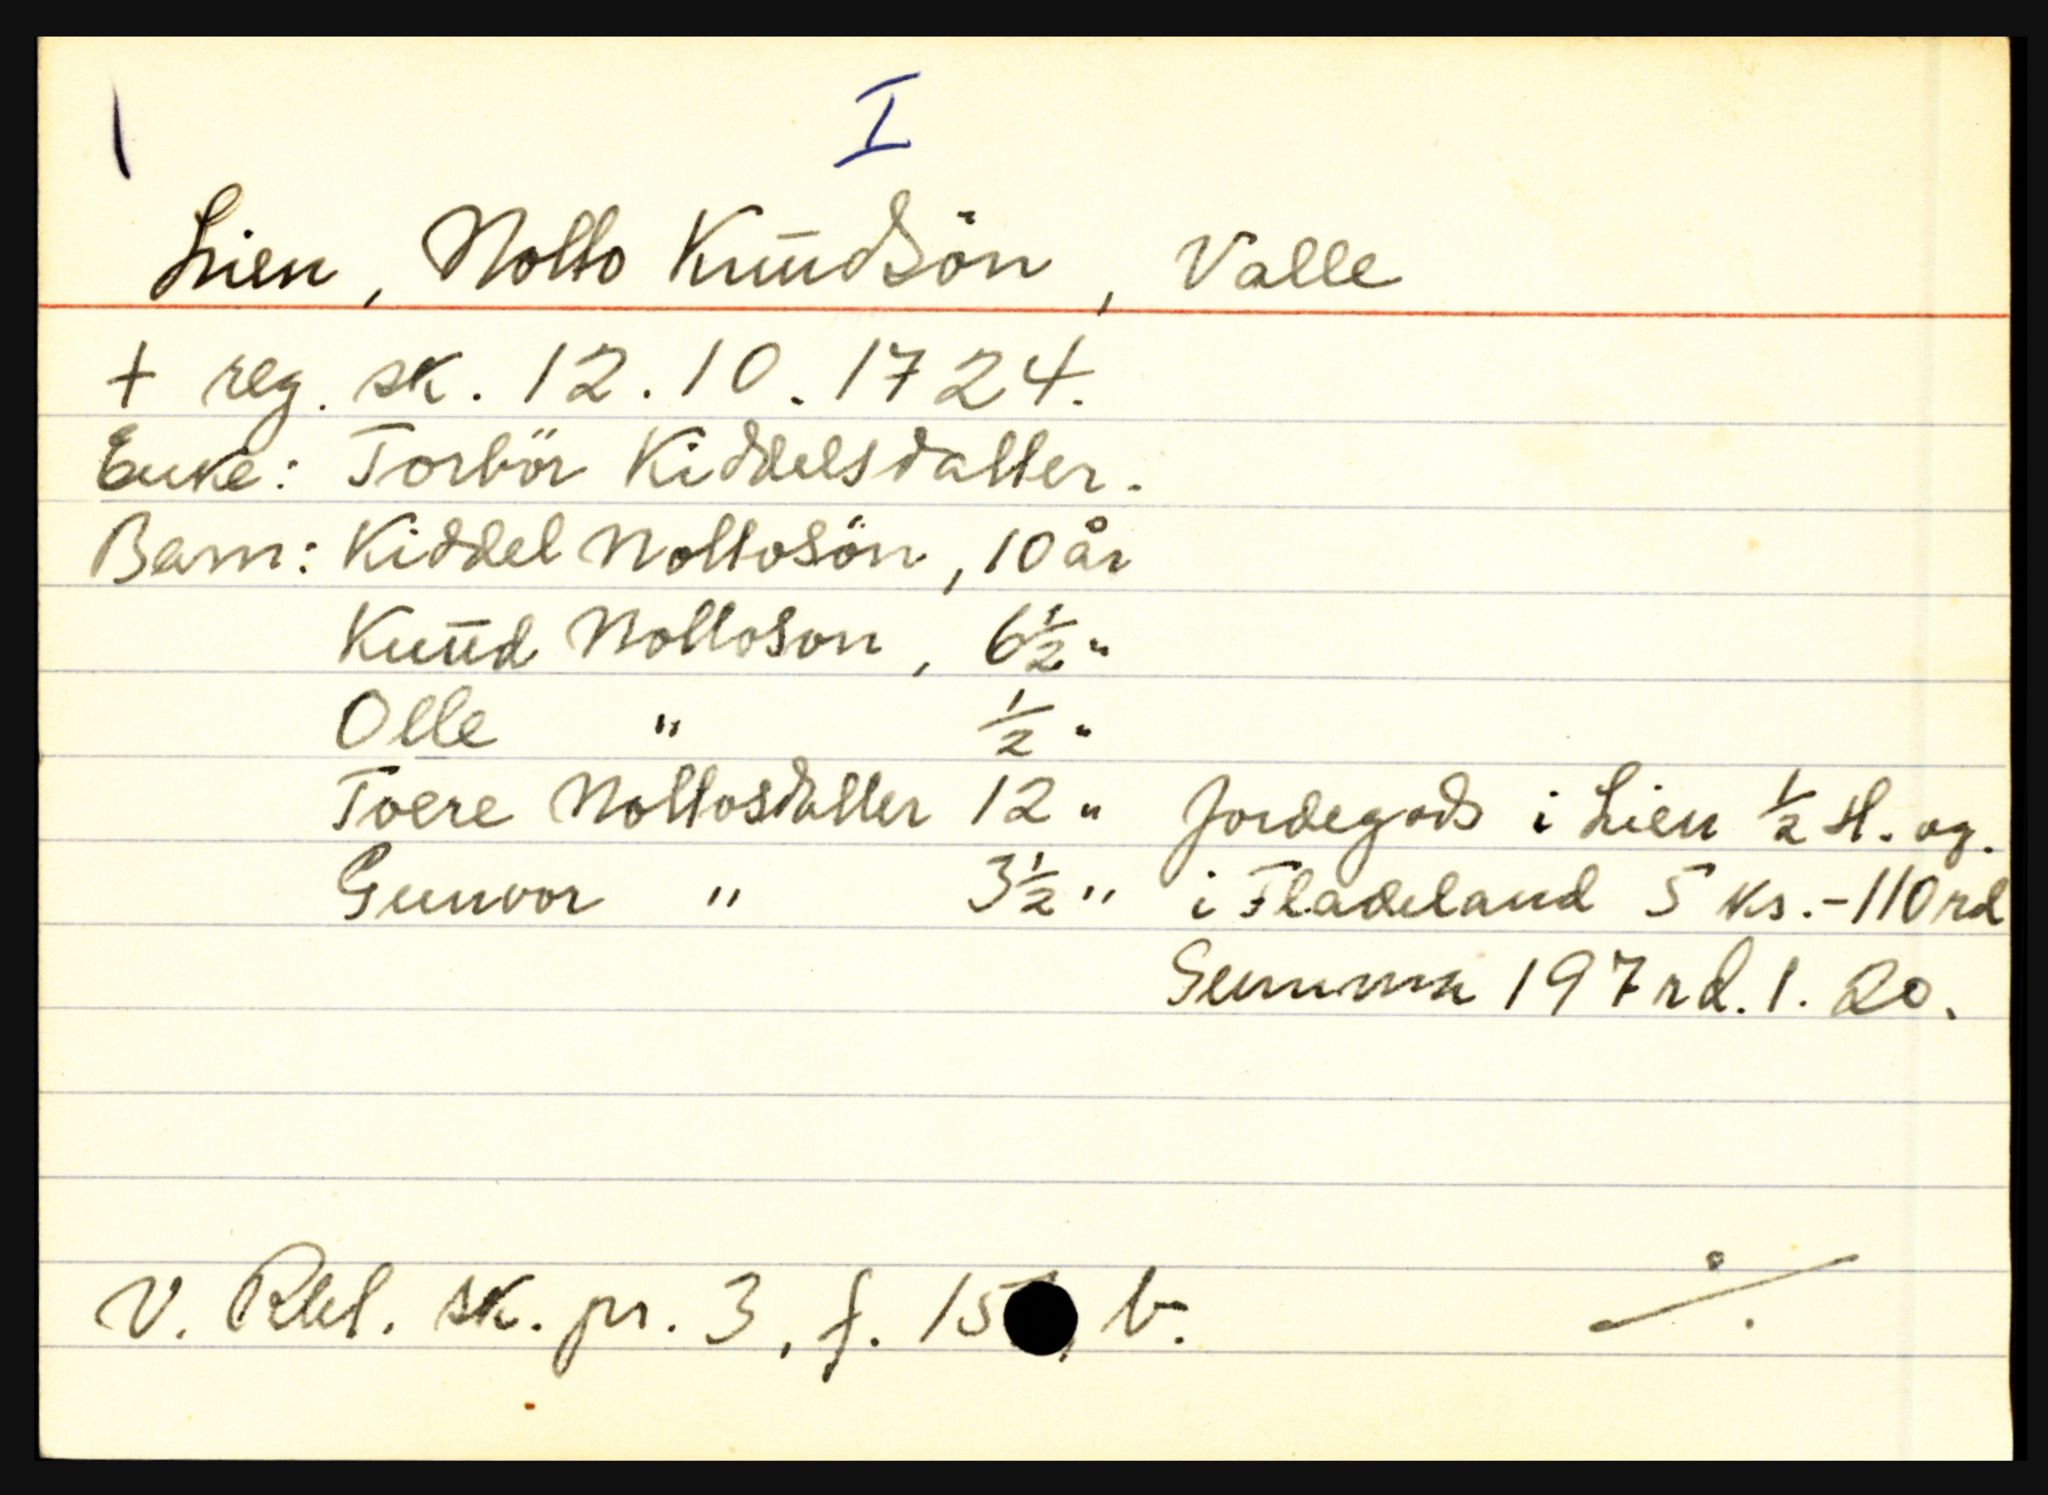 I
Lien, Notto Knudsön, Valle
+ reg. sk. 12.10.1724.
Enke: Torbör Kiddelsdatter.
Barn: Kiddel Nottosön, 10 år
Knud Nottoson, 6½ "
Olle " ½ "
Toere Nottosdatter 12 " Jordegods i Lien ½ H. og.
Gunvor " 3½ " i Fladeland 5 ks. - 110 rd
Summa 197 rd. 1. 20.
V. Rbl. sk. pr. 3, f. 15 b.